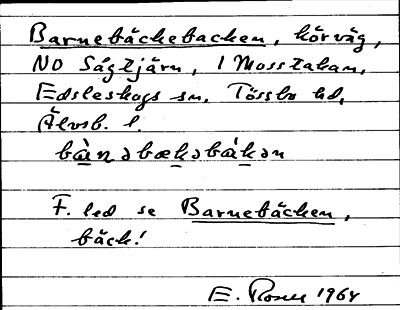 Barnebäckebacken, körväg,
NO Sågtjärn, i Mosstakan,
Edsleskogs sn, Tössbo hd,
Älvsb. l.
bà̱ṉəbæḵəbàḵən
F. led se Barnebäcken,
bäck!
E. Rosell 1964